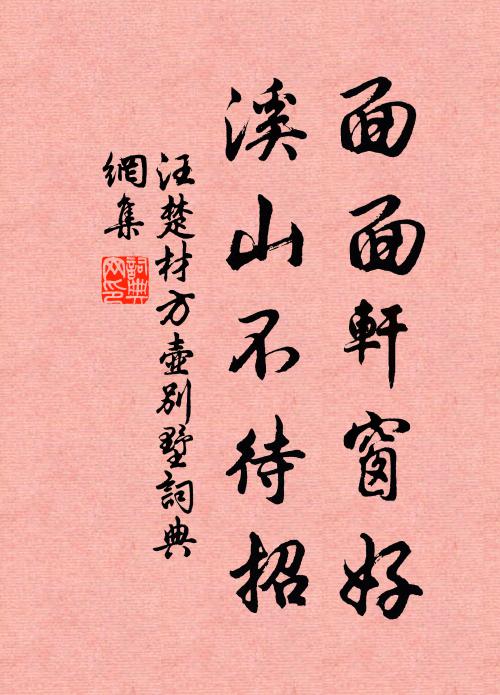 面面軒窗好
溪山不待招
汪楚材方壺別墅詞典
網集
詞典
网印